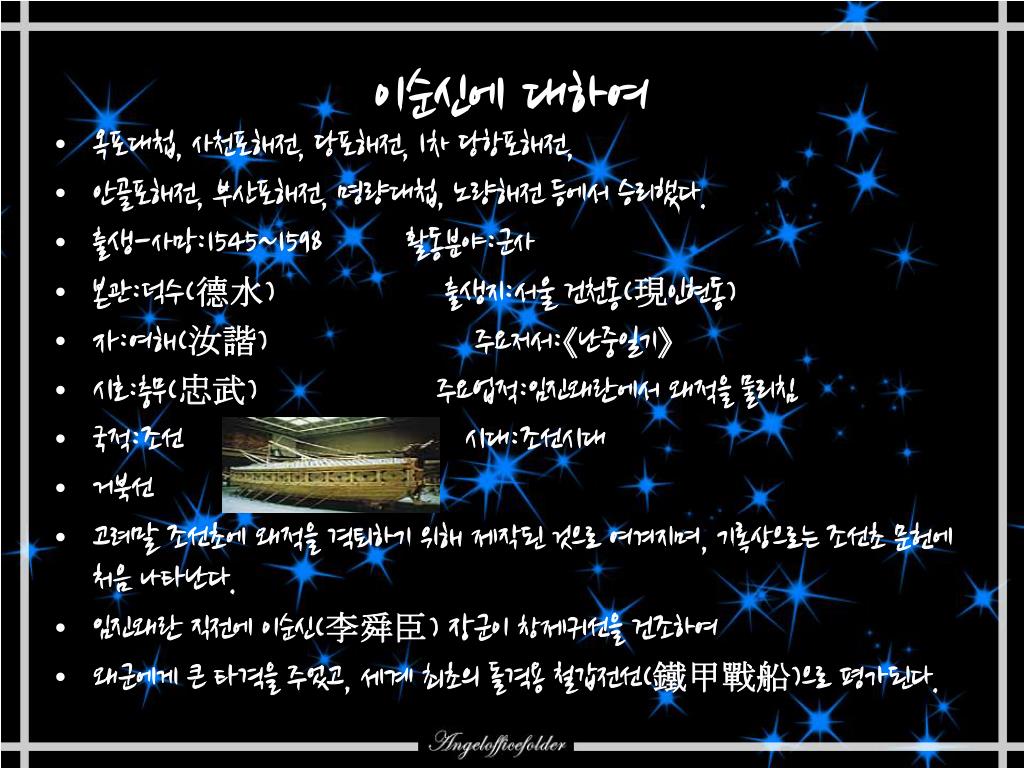 이순신에 대하여
• 옥포대첩, 사천포해전, 당포해전, 1차 당항포해전,
• 안골포해전, 부산포해전, 명량대첩, 노량해전 등에서 승리했다.
• 출생-사망:1545~1598 활동분야:군사
• 본관:덕수(德水) 출생지:서울 건천동(現인현동)
• 자:여해(汝諧) 주요저서:《난중일기》
• 시호:충무(忠武) 주요업적:임진왜란에서 왜적을 물리침
• 국적:조선 시대:조선시대
• 거북선
• 고려말 조선초에 왜적을 격퇴하기 위해 제작된 것으로 여겨지며, 기록상으로는 조선초 문헌에
처음 나타난다.
• 임진왜란 직전에 이순신(李舜臣) 장군이 창제귀선을 건조하여
• 왜군에게 큰 타격을 주었고, 세계 최초의 돌격용 철갑전선(鐵甲戰船)으로 평가된다.
Angelofficefolder